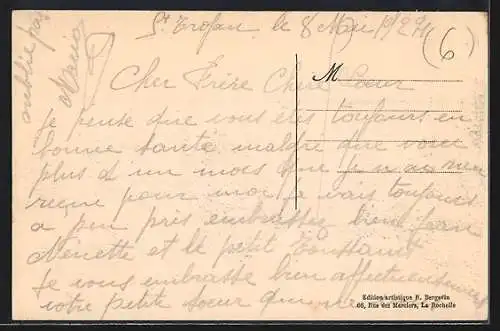 St Trojan le 8 Mai 1929
(6)
Cher Frère Chère Sœur
M
je pense que vous êtes toujours en
bonne santé malgré que voici
plus d un mois que je n ai rien
reçue pour moi je vais toujours
a peu près embrassez bien Jean
Nénette et le petit Toussaint
je vous embrasse bien affectueusement
votre petite sœur qui
oublie pas
Maria
Edition artistique R. Bergevin
66, Rue des Merciers, La Rochelle